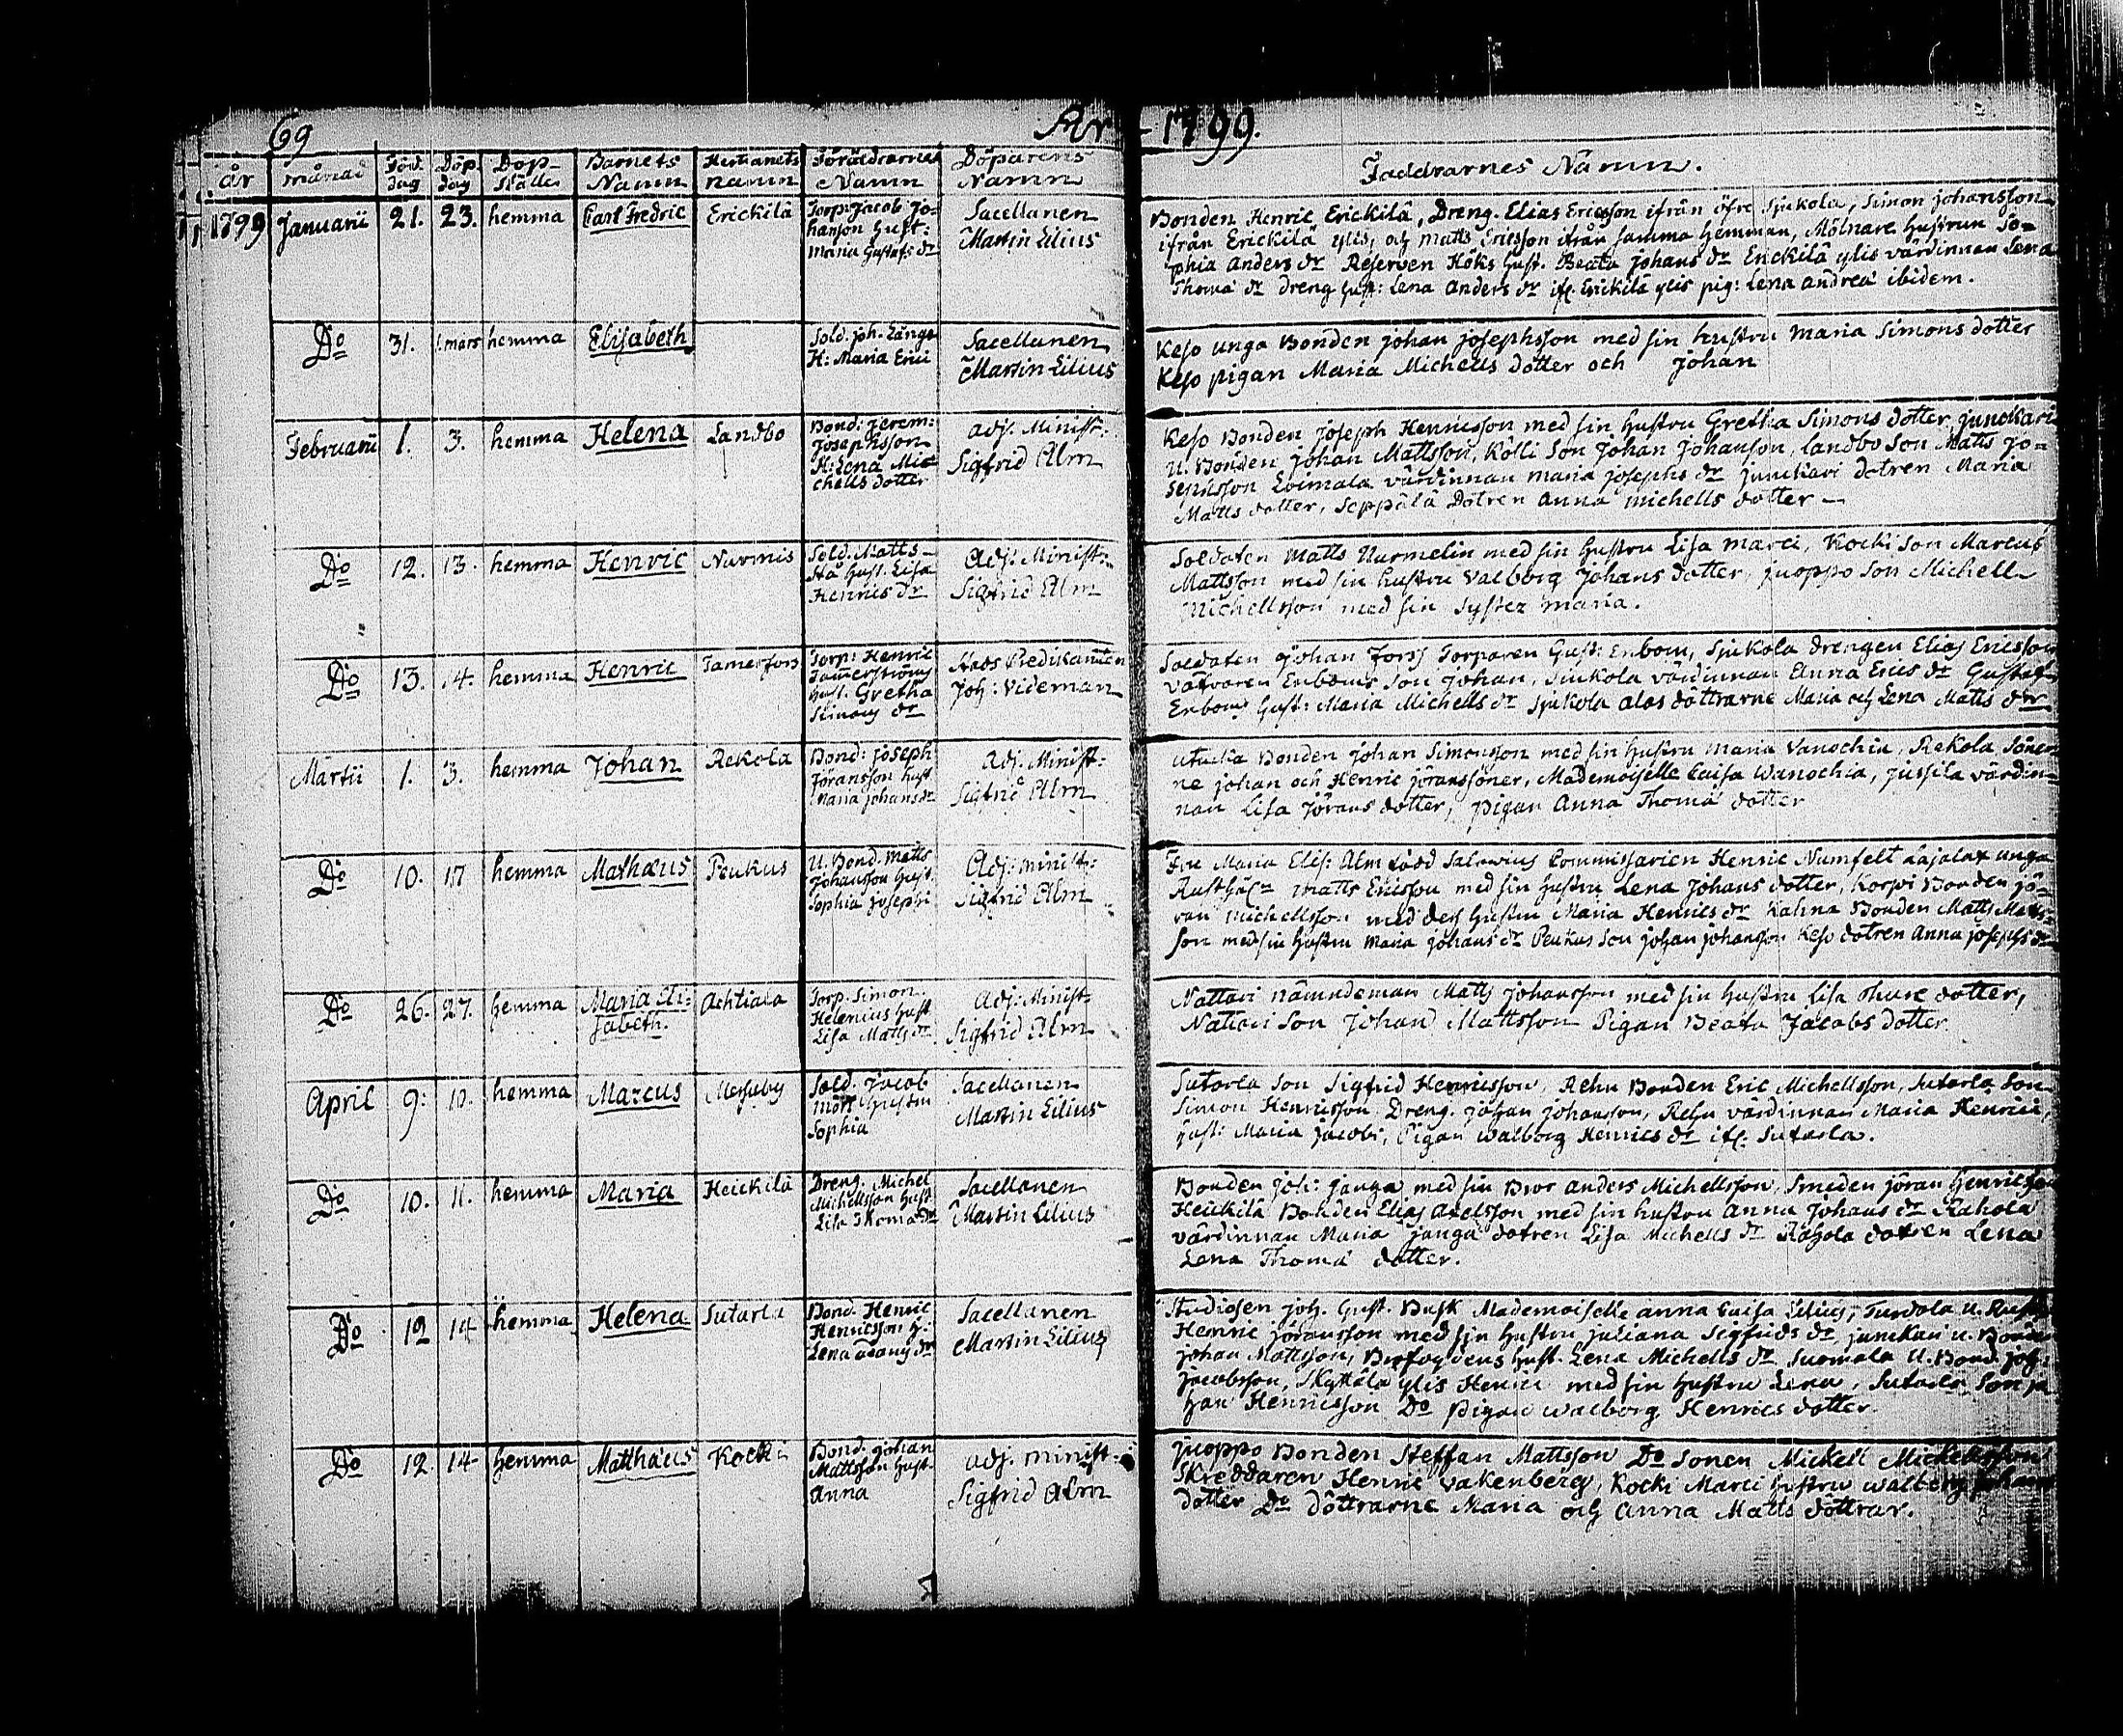 69
År 1799.
år
månad
Föd. dag
Döp. dag
Döp-ställe
Barnets Namn
Hemanets namn
Föräldrarnes Namn
Döparens Namn
Faddrarnes Namn.
1799 Januarii 21. 23. hemma Carl Fredric Erickilä
Torp: Jacob Jo-
hansson Hust:
Maria Gustafs dr
Sacellanen
Martin Lilius
Bonden Henric Erickilä, Dreng. Elias Ericsson ifrån öfre Sjukola, Simon Johansson
ifrån Erickilä ylis, och Matts Ericsson ifrån samma Hemman, Mölnare hustrun So-
phia Anders dr Reserven Köks hust. Beata Johans dr Erickilä ylis värdinnan Lena
Thomæ dr dreng hust: Lena Anders dr if. Erickilä ylis pig: Lena Andreæ ibidem.
Do 31. 1. mars hemma Elisabeth
Sold. Joh. Långe
H: Maria Erici
Sacellanen
Martin Lilius
Keso unga Bonden Johan Josephsson med sin hustru Maria Simons dotter
Keso pigan Maria Michells dotter och Johan
Februarii 1. 3. hemma Helena Landbo
Bond: Jerem:
Josephsson
H: Lena Mi-
chells dotter
Adj. Minist:
Sigfrid Alm
Keso Bonden Joseph Henricsson med sin hustru Gretha Simons dotter, junckari
U. Bonden Johan Mattsson, Kölli Son Johan Johansson, landbo Son Matts Jo-
sephsson Loimala värdinnan Maria Josephs dr junckari dotren Maria
Matts dotter, Seppälä Dotren Anna Michells dotter
Do 12. 13. hemma Henric Nurmis
Sold. Matts
Stå hust. Lisa
Henrics dr
Adj. Minist:
Sigfrid Alm
Soldaten Matts Nurmelin med sin hustru Lisa Marci, Kocki Son Marcus
Mattsson med sin hustru Valborg Johans dotter, Juoppo Son Michell
Michellsson med sin syster Maria.
Do 13. 14. hemma Henric Tamerfors
Torp: Henric
Tamerströms
hust. Gretha
Simons dr
Hoos Predikanten
Joh: Videman
Soldaten Johan Forss Torparen Gust: Enbom, Sjukola Drengen Elias Ericsson
Enboms Son Johan, Sjukola värdinnan Anna Erics dr Gustaf
Enboms hust: Maria Michells dr Sjukola alas döttrarne Maria och Lena Matts dr
Martii 1. 3. hemma Johan Rekola
Bond: Joseph
Jöransson hust
Maria Johans dr
Adj. Minist:
Sigfrid Alm
Bonden Johan Simonsson med sin hustru Maria Vanochia, Rekola Söner-
ne Johan och Henric Jöranssöner, Mademoiselle Caisa Wanochia, Jussila värdin-
nan Lisa Jörans dotter, pigan Anna Thomæ dotter
Do 10. 17 hemma Mathæus Peukus
U. Bond. Matts
Johansson hust.
Sophia Josephi
Adj: minist:
Sigfrid Alm
Fru Maria Elis: Alm född Salovius Commissarien Henric Numfelt Lajalax unga
Rusthåll: Matts Ericsson med sin hustru Lena Johans dotter, Korpi Bonden Jö-
ran Michellsson med des hustru Maria Henrics dr Kahna Bonden Matts Matts-
son med sin hustru Maria Johans dr Peukus Son Johan Johansson Keso dotren Anna Josephs dr
Do 26. 27. hemma Maria Eli-
sabeth. Achtiala
Torp. Simon
Helenius hust
Lisa Matts dr
Adj: Minist:
Sigfrid Alm
Nattari nämndeman Matts Johansson med sin hustru Lisa Thure dotter,
Nattari Son Johan Mattsson Pigan Beata Jacobs dotter
April 9. 10. hemma Marcus Mesuby
Sold. Jacob
Mört hustru
Sophia
Sacellanen
Martin Lilius
Sutarla Son Sigfrid Henricsson, Rehu Bonden Eric Michellsson, Sutarla Son
Simon Henricsson, Dreng. Johan Johansson, Rehu värdinnan Maria Henrici,
hust: Maria Jacobi, Pigan Walborg Henrics dr if. Sutarla.
Do 10. 11. hemma Maria Heickilä
Dreng. Michel
Michellsson hust
Lisa Thomæ dr
Sacellanen
Martin Lilius
Bonden Joh: Janga med sin Bror Anders Michellsson, Smeden Jöran Henricsson
Heickilä Bonden Elias Axelsson med sin hustru Anna Johans dr Rahola
värdinnan Maria Janga dotren Lisa Michells dr Rahola dotren Lena
Lena Thomæ dotter.
Do 12 14 hemma Helena Sutarla
Bond. Henric
Henricsson h.
Lena Adams dr
Sacellanen
Martin Lilius
Studiosen Joh. Gust. Busk Mademoiselle Anna Caisa Lilius, Turdola U. Rust
Henric Jöransson med sin hustru Juliana Sigfrids dr junckari U. Bonden
Johan Mattsson, Brofogdens hust. Lena Michells dr Suomala U. Bond. Joh:
Jacobsson, Skyttälä ylis Henric med sin hustru Lena, Sutarla Son Jo
han Henricsson Do Pigan Walborg Henrics dotter
Do 12. 14 hemma Matthæus Kocki
Bond. Johan
Mattsson hust.
Anna
Adj. minist:
Sigfrid Alm
Juoppo Bonden Steffan Mattsson Do Sonen Mickell Mickellsson
Skreddaren Henric Vakenberg, Kocki Marci hustru Walborg Johans
dotter Do döttrarne Maria och Anna Matts döttrar.